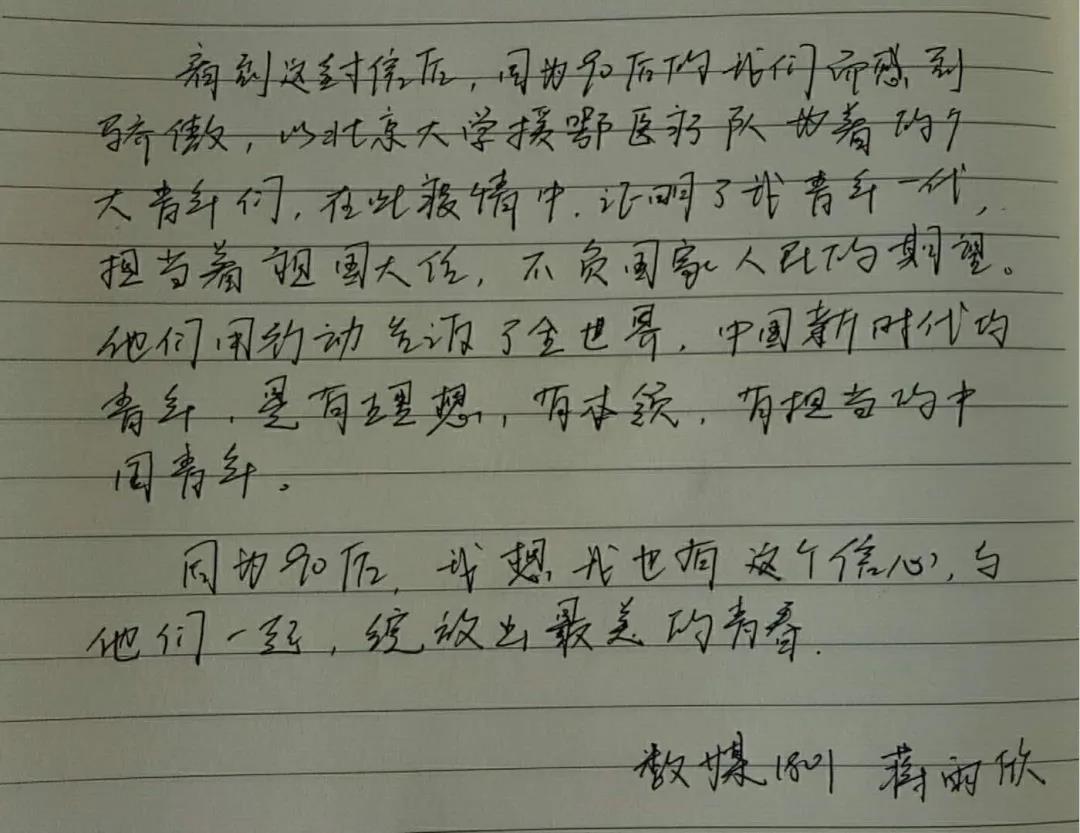 看到这封信后，同为90后的我们而感到
骄傲，以北京大学援鄂医疗队为首的广
大青年们，在此疫情中，证明了我青年一代，
担当着祖国大任，不负国家人民的期望。
他们用行动告诉了全世界，中国新时代的
青年，是有理想，有本领，有担当的中
国青年。
同为90后，我想我也有这个信心，与
他们一起，绽放出最美的青春.
数媒1801 蒋雨欣